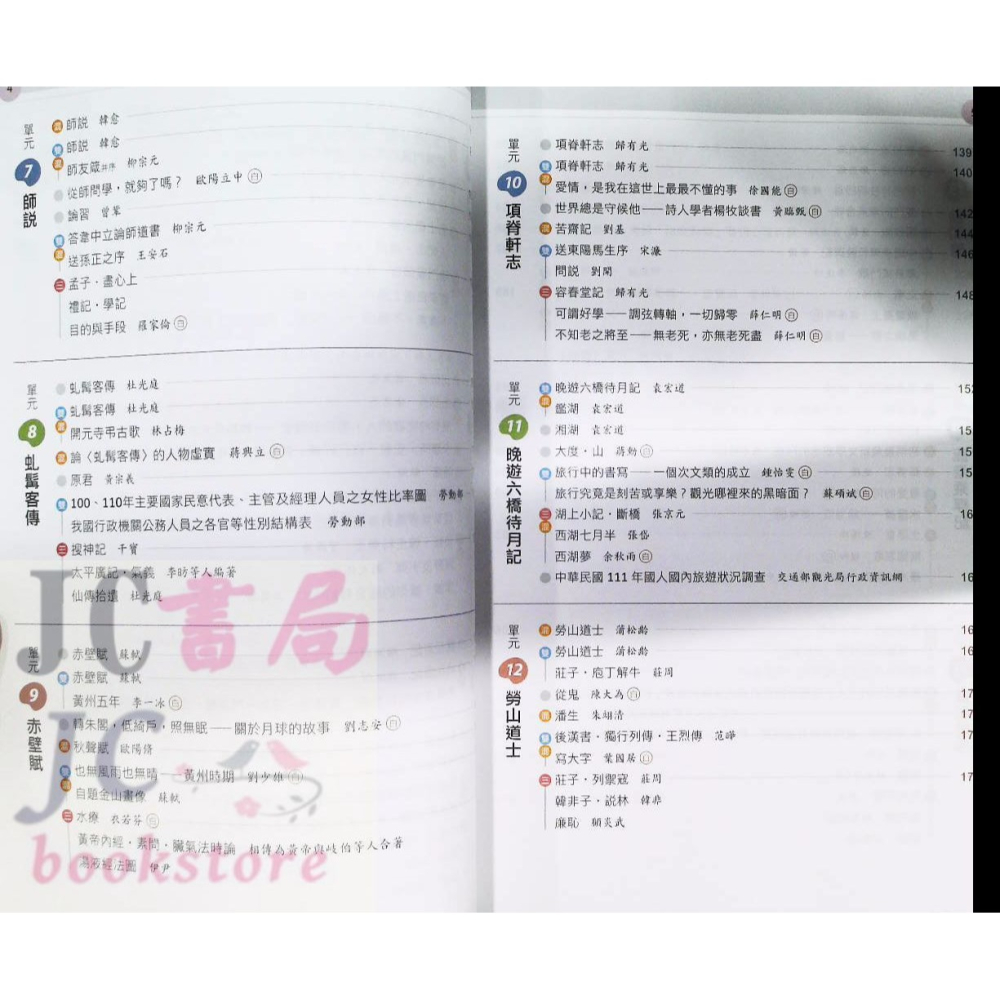 4
單元
7
師說
師說 韓愈
師說 韓愈
師友箴并序 柳宗元
從師問學,就夠了嗎? 歐陽立中 白
論習 曾鞏
答韋中立論師道書 柳宗元
送孫正之序 王安石
三 孟子.盡心上
禮記.學記
目的與手段 羅家倫 白
單元
8
虬髯客傳
虬髯客傳 杜光庭
虬髯客傳 杜光庭
開元寺弔古歌 林占梅
論〈虬髯客傳〉的人物虛實 蔣興立 白
原君 黃宗羲
100、110年主要國家民意代表、主管及經理人員之女性比率圖 勞動部
我國行政機關公務人員之各官等性別結構表 勞動部
三 搜神記 干寶
太平廣記.氣義 李昉等人編著
仙傳拾遺 杜光庭
單元
9
赤壁賦
赤壁賦 蘇軾
赤壁賦 蘇軾
黃州五年 李一冰 白
轉朱閣,低綺戶,照無眠——關於月球的故事 劉志安 白
秋聲賦 歐陽脩
也無風雨也無晴——黃州時期 劉少雄 白
自題金山畫像 蘇軾
三 水療 衣若芬 白
黃帝內經.素問.臟氣法時論 相傳為黃帝與岐伯等人合著
湯液經法圖 伊尹
單元
10
項脊軒志
項脊軒志 歸有光 139
項脊軒志 歸有光 140
愛情,是我在這世上最最不懂的事 徐國能 白
世界總是守候他——詩人學者楊牧談書 黃臨甄 白 142
苦齋記 劉基 144
送東陽馬生序 宋濂 146
問說 劉開
三 容春堂記 歸有光 148
可謂好學——調弦轉軸,一切歸零 薛仁明 白
不知老之將至——無老死,亦無老死盡 薛仁明 白
單元
11
晚遊六橋待月記
晚遊六橋待月記 袁宏道 152
鑑湖 袁宏道
湘湖 袁宏道 15
大度.山 蔣勳 白 15
旅行中的書寫——一個次文類的成立 鍾怡雯 白 15
旅行究竟是刻苦或享樂?觀光哪裡來的黑暗面? 蘇碩斌 白
三 湖上小記.斷橋 張京元 16
西湖七月半 張岱
西湖夢 余秋雨 白
中華民國 111 年國人國內旅遊狀況調查 交通部觀光局行政資訊網 16
單元
12
勞山道士
勞山道士 蒲松齡 16
勞山道士 蒲松齡 16
莊子.庖丁解牛 莊周
從鬼 陳大為 白 17
潘生 朱翊清 17
後漢書.獨行列傳.王烈傳 范曄 17
寫大字 葉國居 白
三 莊子.列禦寇 莊周 17
韓非子.說林 韓非
廉恥 顧炎武
JC書局
JC
bookstore